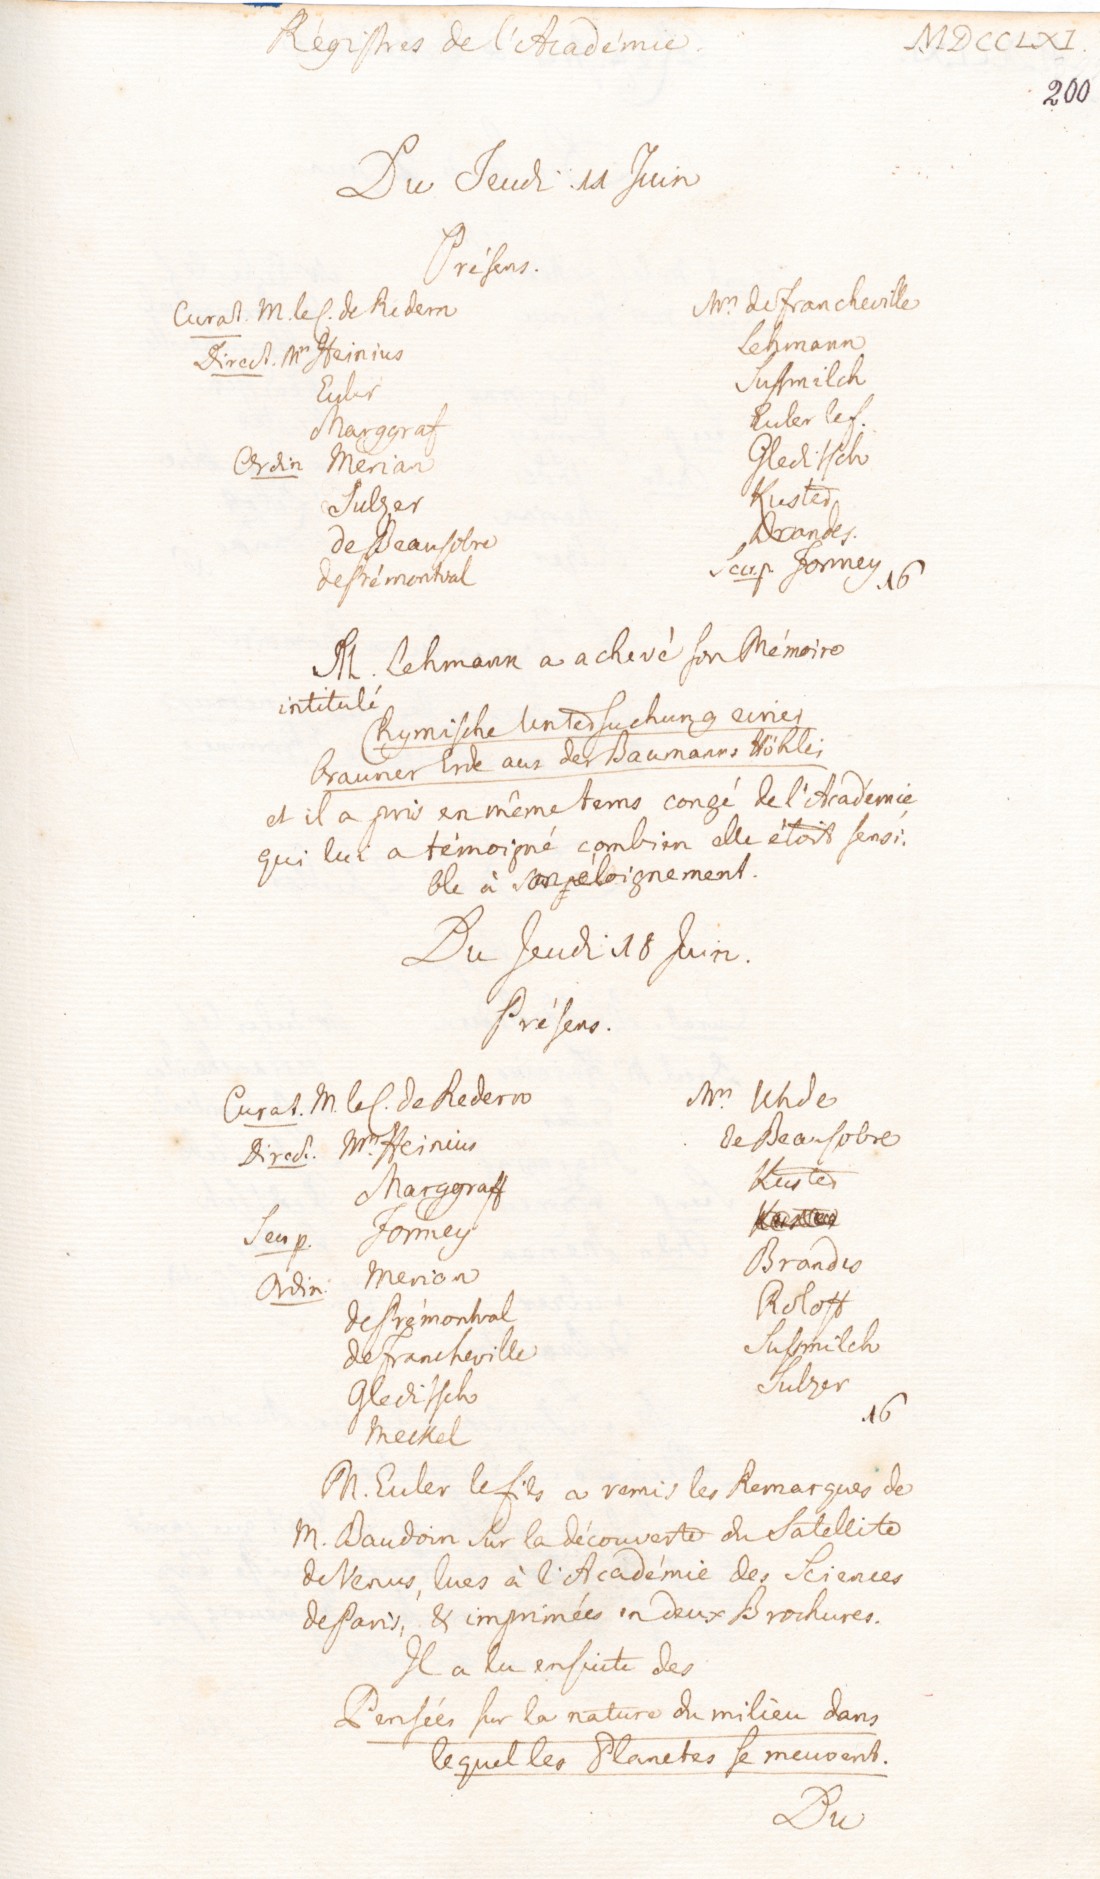 Régistres de l'Académie.
MDCCLXI.
200
Du Jeudi 11 Juin
Présens.
Curat. M. le C. de Redern
Direct. Mrs Heinius
Euler
Marggraf
Ordin Merian
Sulzer
de Beausobre
de Prémontval
Mrs de Francheville
Lehmann
Sussmilch
Euler le f.
Gleditsch
Kuster
Brandes.
Secr. p. Formey
16
M. Lehmann a achevé son Mémoire
intitulé
Chymische Untersuchung einer
brauner Erde aus der Baumanns Höhle,
et il a pris en même tems congé de l'Académie
qui lui a témoigné combien elle étoit sensi-
ble à son éloignement.
Du Jeudi 18 Juin.
Présens.
Curat. M. le C. de Redern
Direct. Mrs Heinius
Marggraff
Secr. p. Formey
Ordin. Merian
de Prémontval
de Francheville
Gleditsch
Meckel
Mrs Uhde
de Beausobre
Kuster
Brandes
Roloff
Sussmilch
Sulzer
16
M. Euler le fils a remis les Remarques de
M. Baudoin sur la découverte du Satellite
de Venus, lues à l'Académie des Sciences
de Paris, & imprimées en deux Brochures.
Il a lu ensuite des
Pensées sur la nature du milieu dans
lequel les Planetes se meuvent.
Du